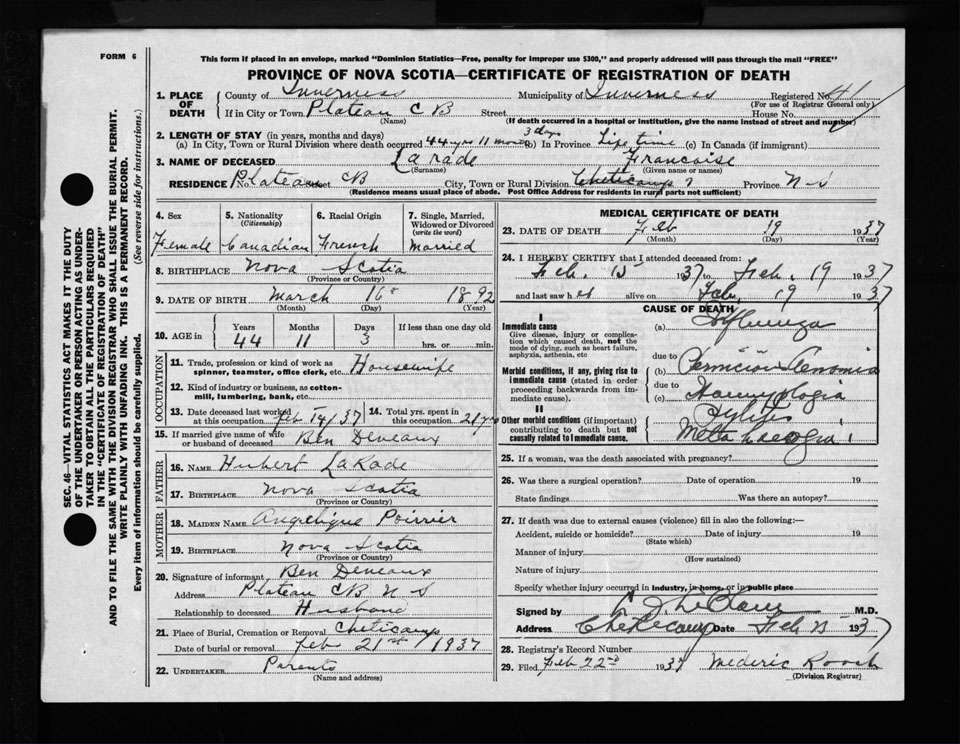 FORM 6
This form if placed in an envelope, marked "Dominion Statistics—Free, penalty for improper use $300," and properly addressed will pass through the mail "FREE"
PROVINCE OF NOVA SCOTIA—CERTIFICATE OF REGISTRATION OF DEATH
SEC. 46—VITAL STATISTICS ACT MAKES IT THE DUTY
OF THE UNDERTAKER OR PERSON ACTING AS UNDER-
TAKER TO OBTAIN ALL THE PARTICULARS REQUIRED
IN THE "CERTIFICATE OF REGISTRATION OF DEATH"
AND TO FILE THE SAME WITH THE DIVISION REGISTRAR WHO SHALL ISSUE THE BURIAL PERMIT.
WRITE PLAINLY WITH UNFADING INK. THIS IS A PERMANENT RECORD.
Every item of information should be carefully supplied. (See reverse side for instructions.)
1. PLACE OF DEATH
County of Inverness Municipality of Inverness Registered No. 41
(For use of Registrar General only)
If in City or Town Plateau CB Street House No.
(Name) (If death occurred in a hospital or institution, give the name instead of street and number)
2. LENGTH OF STAY (in years, months and days)
(a) In City, Town or Rural Division where death occurred 44 yrs 11 mos 3 days (b) In Province Life time (c) In Canada (if immigrant)
3. NAME OF DECEASED LaRade Francoise
(Surname) (Given name or names)
RESIDENCE No. Plateau Street CB City, Town or Rural Division Cheticamp Province N-S
(Residence means usual place of abode. Post Office Address for residents in rural parts not sufficient)
4. Sex Female
5. Nationality (Citizenship) Canadian
6. Racial Origin French
7. Single, Married, Widowed or Divorced (write the word) Married
8. BIRTHPLACE Nova Scotia
(Province or Country)
9. DATE OF BIRTH March 16th 1892
(Month) (Day) (Year)
10. AGE in Years 44 Months 11 Days 3 If less than one day old hrs. or min.
OCCUPATION
11. Trade, profession or kind of work as spinner, teamster, office clerk, etc. Housewife
12. Kind of industry or business, as cotton-mill, lumbering, bank, etc.
13. Date deceased last worked at this occupation Feb 14/37
14. Total yrs. spent in this occupation 21 yrs
15. If married give name of wife or husband of deceased Ben Deveaux
FATHER
16. NAME Hubert LaRade
17. BIRTHPLACE Nova Scotia
(Province or Country)
MOTHER
18. MAIDEN NAME Angelique Poirrier
19. BIRTHPLACE Nova Scotia
(Province or Country)
20. Signature of informant Ben Deveaux
Address Plateau CB N S
Relationship to deceased Husband
21. Place of Burial, Cremation or Removal Cheticamp
Date of burial or removal Feb 21st 1937
22. UNDERTAKER Parents
(Name and address)
MEDICAL CERTIFICATE OF DEATH
23. DATE OF DEATH Feb 19 1937
(Month) (Day) (Year)
24. I HEREBY CERTIFY that I attended deceased from:
Feb. 15 1937 to Feb. 19 1937
and last saw her alive on Feb. 19 1937
CAUSE OF DEATH
I
Immediate cause
Give disease, injury or complication which caused death, not the mode of dying, such as heart failure, asphyxia, asthenia, etc
(a) Influenza
due to
Morbid conditions, if any, giving rise to immediate cause (stated in order proceeding backwards from immediate cause).
(b) Pernicious
due to
(c)
II
Other morbid conditions (if important) contributing to death but not causally related to immediate cause.
25. If a woman, was the death associated with pregnancy?
26. Was there a surgical operation? Date of operation 19
State findings Was there an autopsy?
27. If death was due to external causes (violence) fill in also the following:—
Accident, suicide or homicide? Date of injury 19
(State which)
Manner of injury
(How sustained)
Nature of injury
Specify whether injury occurred in industry, in home, or in public place
Signed by M.D.
Address Cheticamp Date Feb 25 1937
28. Registrar's Record Number
29. Filed Feb 22nd 1937 Mederic Roach
(Division Registrar)